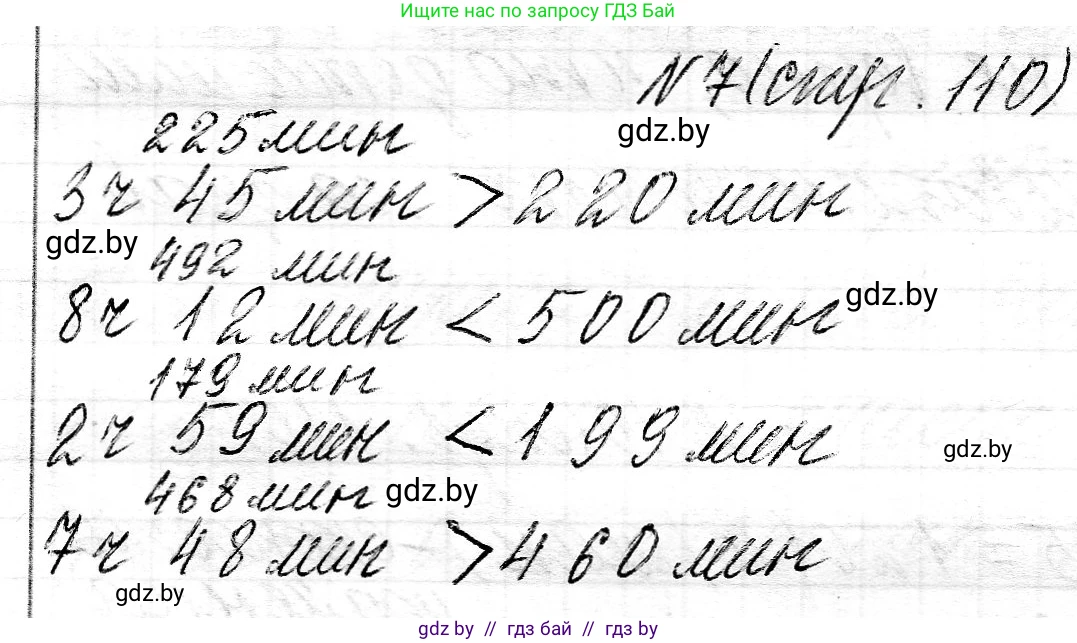 Ищите нас по запросу ГДЗ Бай
№7(стр. 110)
gdz.by
225мин
3ч 45мин > 220мин
gdz.by
492 мин
gdz.by
8ч 12мин < 500мин
179мин
2ч 59мин < 199мин
gdz.by
468мин
gdz.by
7ч 48мин > 460мин
gdz.by
gdz.by // гдз бай // гдз by